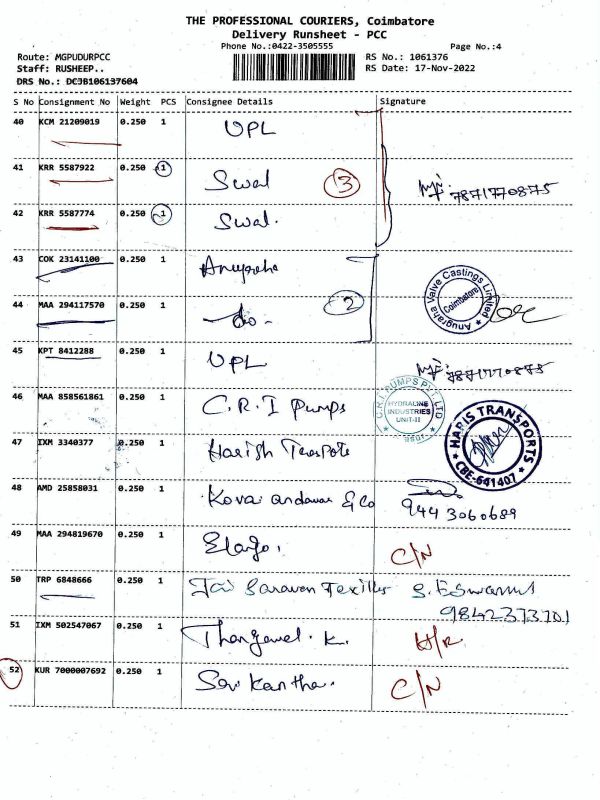 THE PROFESSIONAL COURIERS, Coimbatore
Delivery Runsheet - PCC
Phone No.:0422-3505555 Page No.:4
Route: MGPUDURPCC RS No.: 1061376
Staff: RUSHEEP.. RS Date: 17-Nov-2022
DRS No.: DCJB106137604
S No Consignment No Weight PCS Consignee Details Signature
40 KCM 21209019 0.250 1 UPL
41 KRR 5587922 0.250 1 Swal 3 7871770875
42 KRR 5587774 0.250 1 Swal.
43 COK 23141100 0.250 1 Anugraha
Anugraha Valve Castings Limited Coimbatore
44 MAA 294117570 0.250 1 -do- 2
45 KPT 8412288 0.250 1 UPL 7871770875
46 MAA 858561861 0.250 1 C.R.I Pumps
C.R.I. PUMPS PVT LTD HYDRALINE INDUSTRIES UNIT-II
47 IXM 3340377 0.250 1 Harish
HARIS TRANSPORTS CBE-641407
48 AMD 25858031 0.250 1 Kovai andavar & Co 9443060689
49 MAA 294819670 0.250 1 C/N
50 TRP 6848666 0.250 1 Jai Saravan S. Eswaran
9842373701
51 IXM 502547067 0.250 1 Thangavel. K. H/R
52 KUR 7000007692 0.250 1 C/N